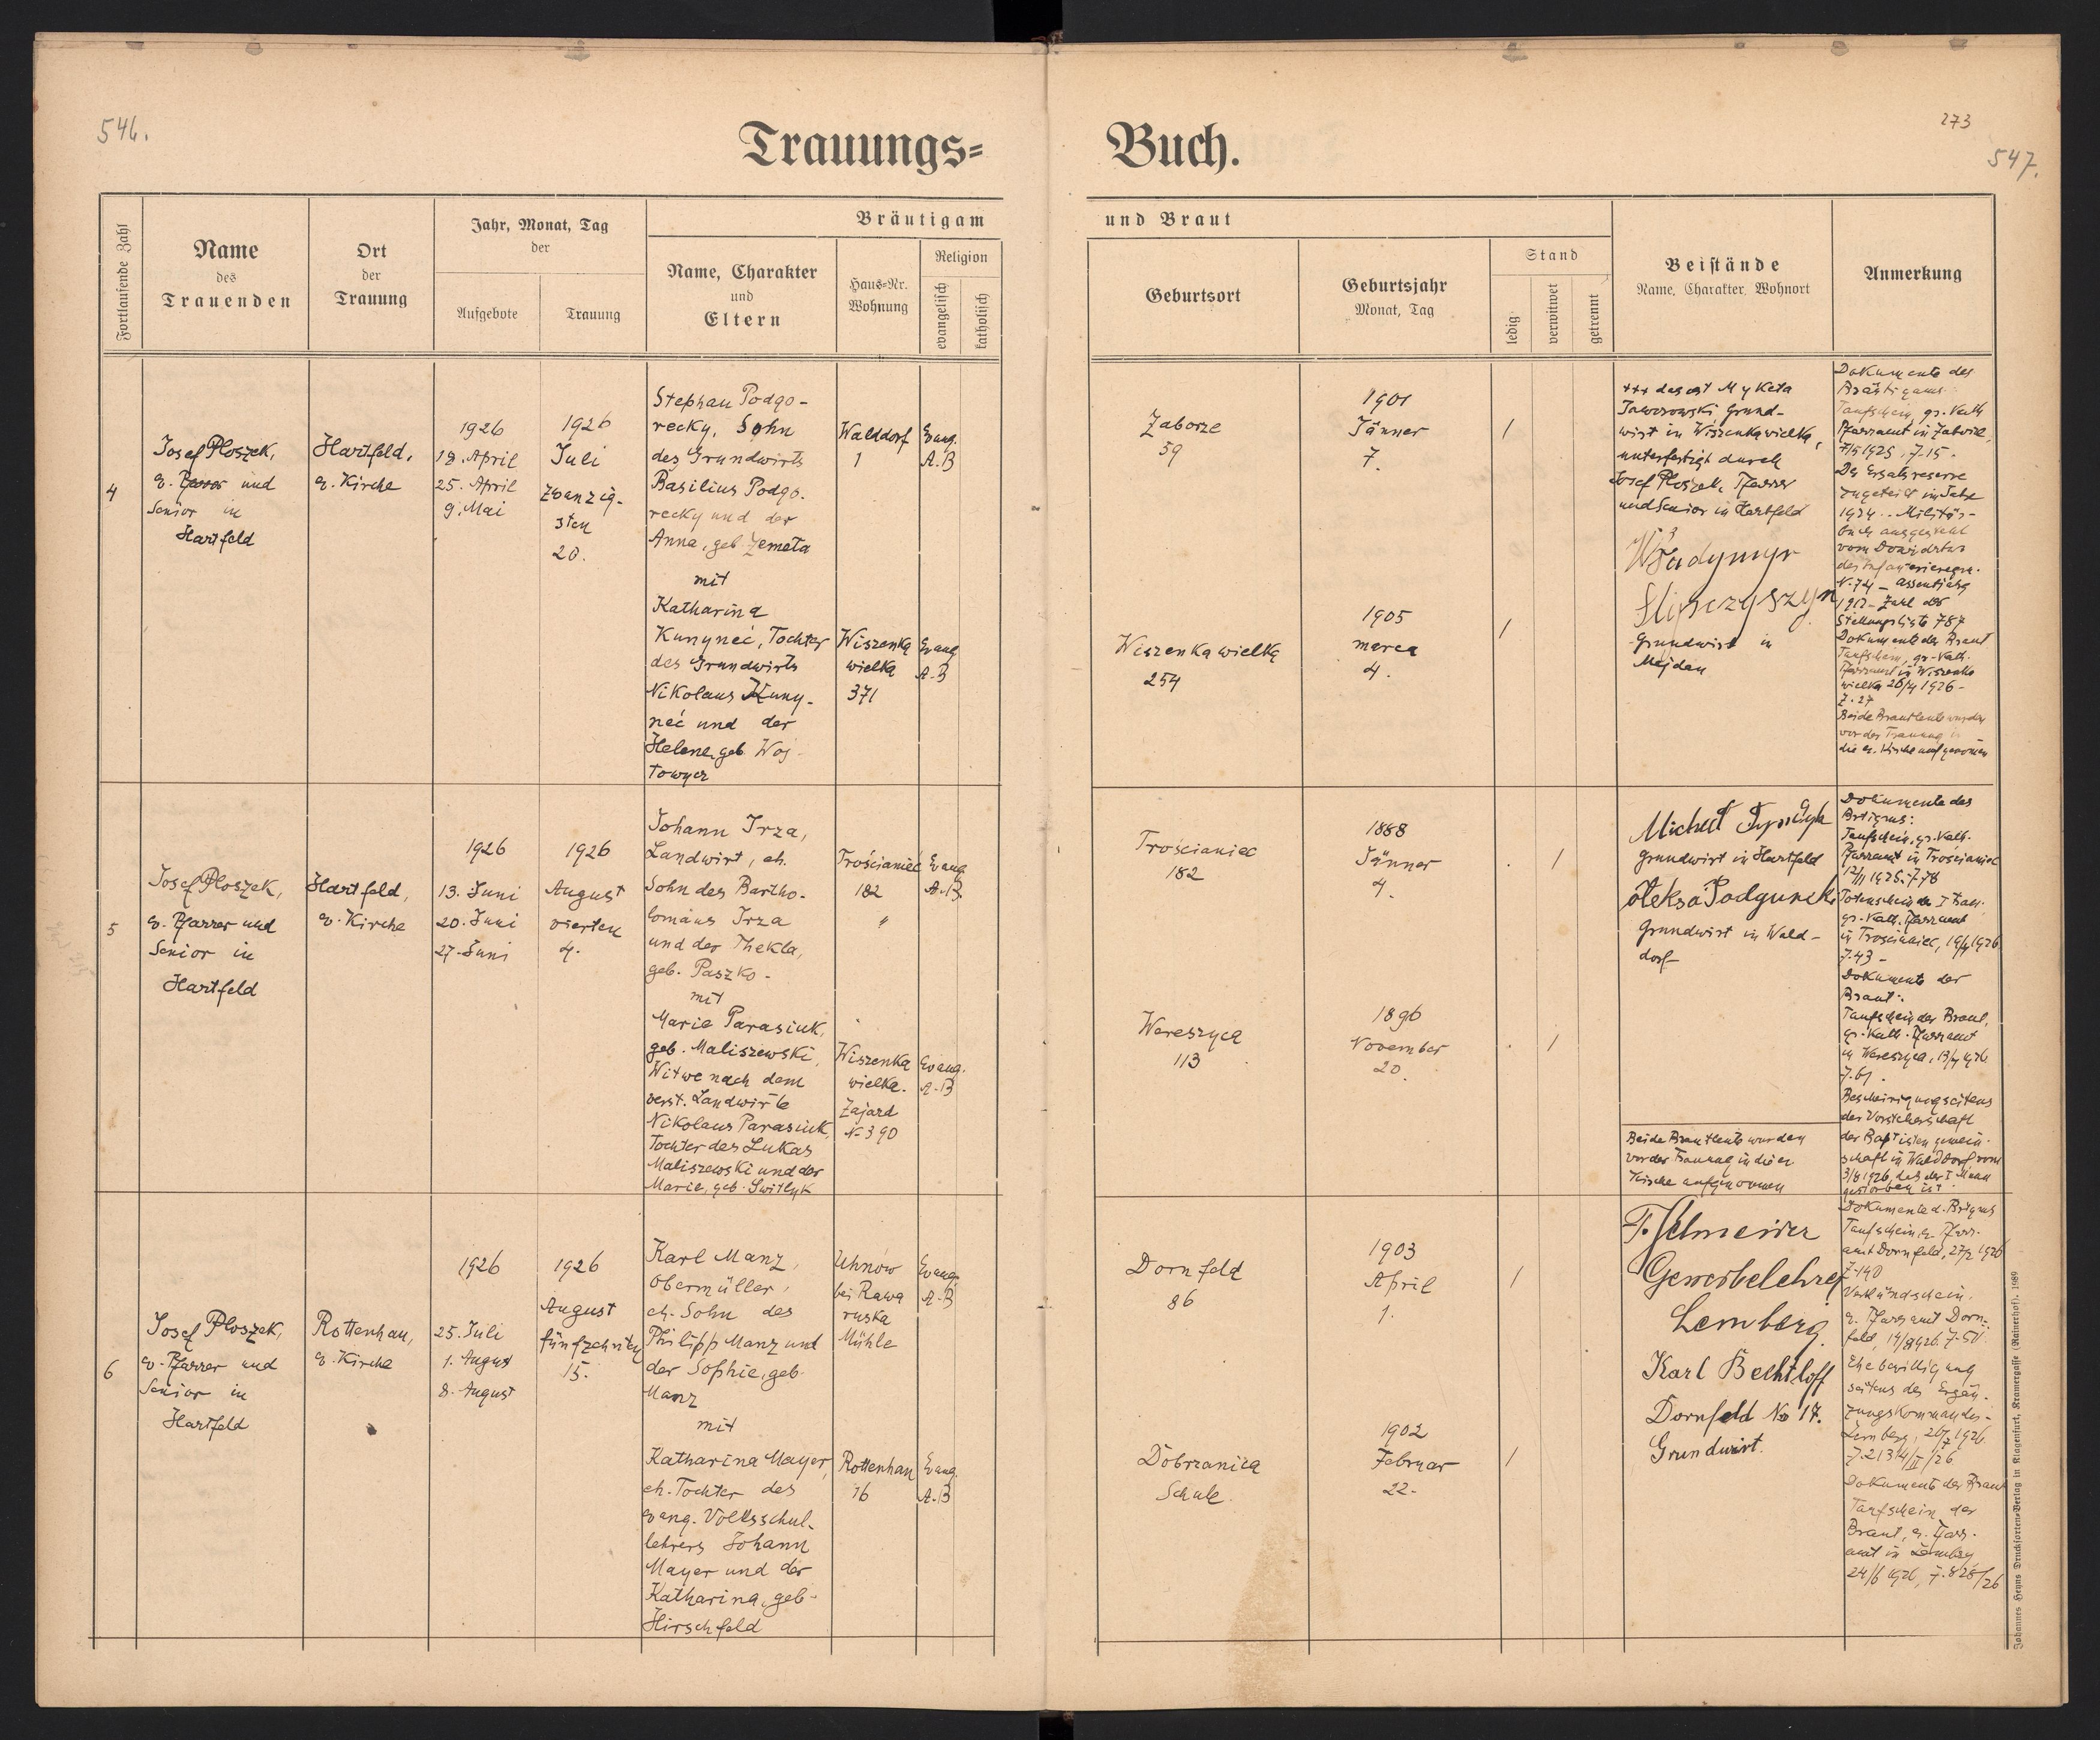 546.
273
547.
Trauungs=
Buch.
Fortlaufende Zahl
Name
des
Trauenden
Ort
der
Trauung
Jahr, Monat, Tag
der
Aufgebote
Trauung
Bräutigam
Name, Charakter
und
Eltern
Haus=Nr.
Wohnung
Religion
evangelisch
katholisch
und Braut
Geburtsort
Geburtsjahr
Monat, Tag
Stand
ledig
verwitwet
getrennt
Beistände
Name, Charakter, Wohnort
Anmerkung
4
Josef Ploszek,
e. Pfarrer und
Senior in
Hartfeld
Hartfeld,
e. Kirche
1926
18. April
25. April
9. Mai
1926
Juli
zwanzig-
sten
20.
Stephan Podgo-
recky, Sohn
des Grundwirts
Basilius Podgo-
recky und der
Anna, geb. Zemeta
mit
Katharina
Kunyneć, Tochter
des Grundwirts
Nikolaus Kuny-
neć und der
Helene, geb. Woj-
towycz
Walddorf
1
Evang.
A.B
Wiszenka
wielka
371
Evang
A.B
Zaborze
59
1901
Jänner
7.
/
Wiszenka wielka
254
1905
marca
4.
/
+++ das ist Myketa
Jaworowski Grund-
wirt in Wiszenka wielka,
unterfertigt durch
Josef Ploszek, Pfarrer
und Senior in Hartfeld
Grundwirt in
Majdan
Dokumente des
Bräutigams:
Taufschein, gr. Kath
Pfarramt in
7/5 1925, Z. 15.
Die Ersatzreserve
zugeteilt im Jahre
1924 - Militär-
buch ausgestellt
vom
des Infanterieregm.
N. 74 - assentjahrg
Zahl der
Stellungsliste 787
Dokumente der Braut
Taufschein, gr. Kath.
Pfarramt in Wiszenka
wielka 26/4 1926 -
Z. 27
Beide Brautleute wurden
vor der Trauung in
die e. Kirche aufgenomen
5
Josef Ploszek,
e. Pfarrer und
Senior in
Hartfeld
Hartfeld,
e. Kirche
1926
13. Juni
20. Juni
27. Juni
1926
August
vierten
4.
Johann Irza,
Landwirt, eh.
Sohn des Bartho-
lomäus Irza
und der Thekla,
geb. Paszko -
mit
Marie Parasiuk,
geb. Maliszewski,
Witwe nach dem
verst. Landwirte
Nikolaus Parasiuk,
Tochter des Lukas
Maliszewski und der
Marie, geb. Switlyk
Trościaniec
182
"
Evang
A.B.
Wiszenka
wielka.
Zajard
N. 390
Evang.
A.B
Trościaniec
182
1888
Jänner
4.
/
Wereszyca
113
1896
November
20.
/
Michał
Grundwirt in Hartfeld
Grundwirt in Wald-
dorf
Beide Brautleute wurden
vor der Trauung in die e.
Kirche aufgenommen
Dokumente des
Taufschein, gr. Kath.
Pfarramt in Trościaniec
Z. 78
gr. Kath. Pfarramt
in Trościaniec, 19/4 1926
Z. 43 -
Dokumente der
Braut:
Taufschein der Braut,
gr. Kath. Pfarramt
in Wereszyca, 13/4 1926
Z. 61.
Bescheinigung seitens
der Vorsteherschaft
der Baptistengemein-
schaft in Walddorf vom
3/8 1926, daß der I Mann
gestorben ist
6
Josef Ploszek,
e. Pfarrer und
Senior in
Hartfeld
Rottenhan,
e. Kirche
1926
25. Juli
1. August
8. August
1926
August
fünfzehnten
15.
Karl Manz,
Obermüller,
eh. Sohn des
Philipp Manz und
der Sophie, geb.
Manz
mit
Katharina Mayer,
eh. Tochter des
evang. Volksschul-
lehrers Johann
Mayer und der
Katharina, geb.
Hirschfeld
Uhnów
bei Rawa
ruska
Mühle
Evang.
A.B
Rottenhan
16
Evang.
A.B
Dornfeld
86
1903
April
1.
/
Dobrzanica
Schule
1902
Februar
22.
/
Gewerbelehrer
Lemberg.
Karl Bechtloff
Dornfeld No 17.
Grundwirt.
Dokumente d. Brtgms
Taufschein, e. Pfarr-
amt Dornfeld, 27/2 1926
Z. 140
Verkündschein,
e. Pfarramt Dorn-
feld, 14/8 1926. Z. 511
Ehebewilligung
seitens des Ergän-
zungskommandos -
Lemberg, 26/7 1926
Dokumente der Braut
Taufschein der
Braut, e. Pfarr-
amt in Lemberg
24/6 1926, Z. 828/26
Johannes Heyns Drucksorten=Verlag in Klagenfurt, Kramergasse (Rainerhof). 1989